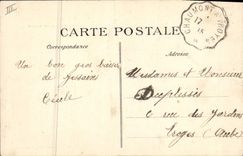 III
CARTE POSTALE
Correspondance
Adresse
CHAUMONT A
17
Un bon gros baiser
de Jessains
Cécile
Mesdames et Monsieur
Duplessis
rue des Jardins
Troyes (Aube)